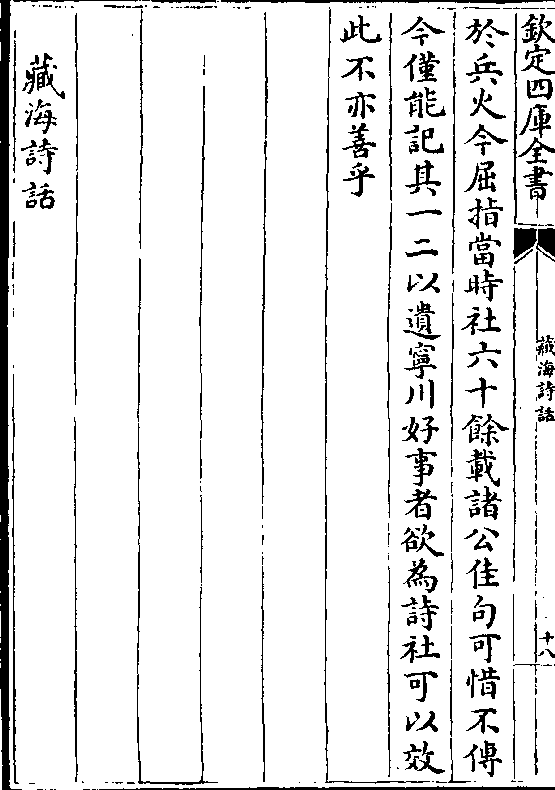 欽定四庫全書
藏海詩話
十八
於兵火今屈指當時社六十餘載諸公佳句可惜不傳
今僅能記其一二以遺寧川好事者欲為詩社可以效
此不亦善乎
藏海詩話